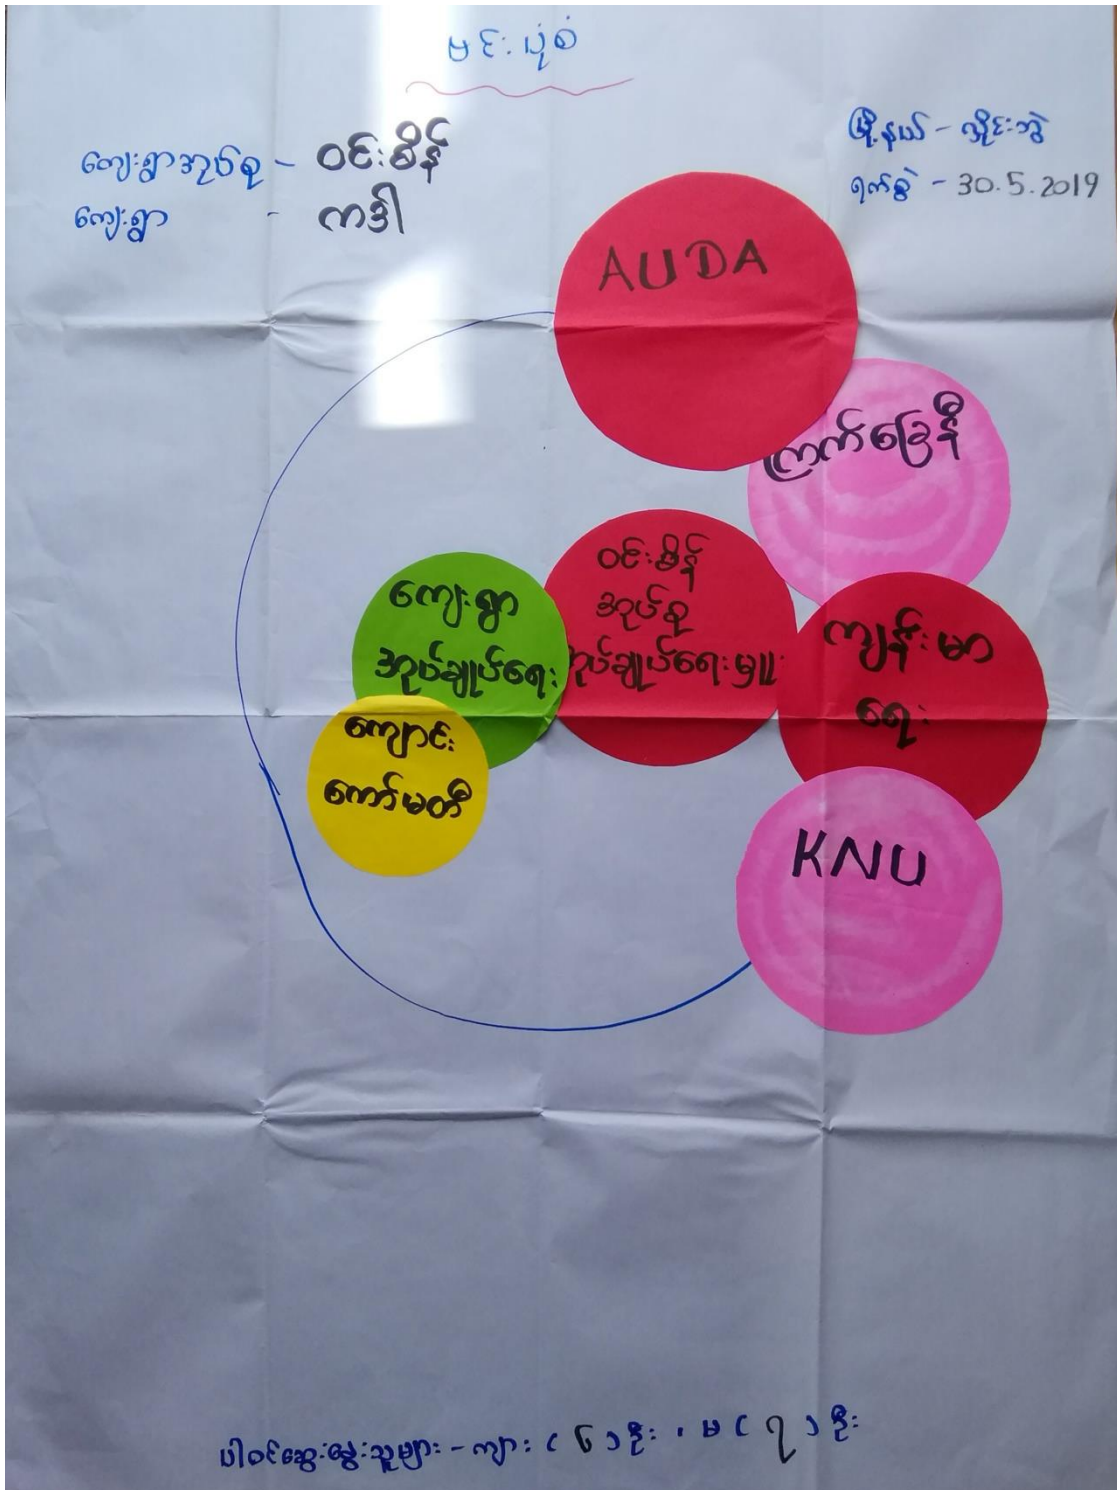 မင်းပုံစံ
ကျေးရွာအုပ်စု - ဝင်းစိန်
ကျေးရွာ - ကဒေါ
မြို့နယ် - လှိုင်းဘွဲ
ရက်စွဲ - 30.5.2019
AUDA
ကြက်ခြေနီ
ဝင်းစိန်
အုပ်စု
အုပ်ချုပ်ရေးမှူး
ကျေးရွာ
အုပ်ချုပ်ရေး
ကျောင်း
ကော်မတီ
ကျန်းမာ
ရေး
KNU
ပါဝင်ဆွေးနွေးသူများ - ကျား (၆) ဦး၊ မ (၇) ဦး